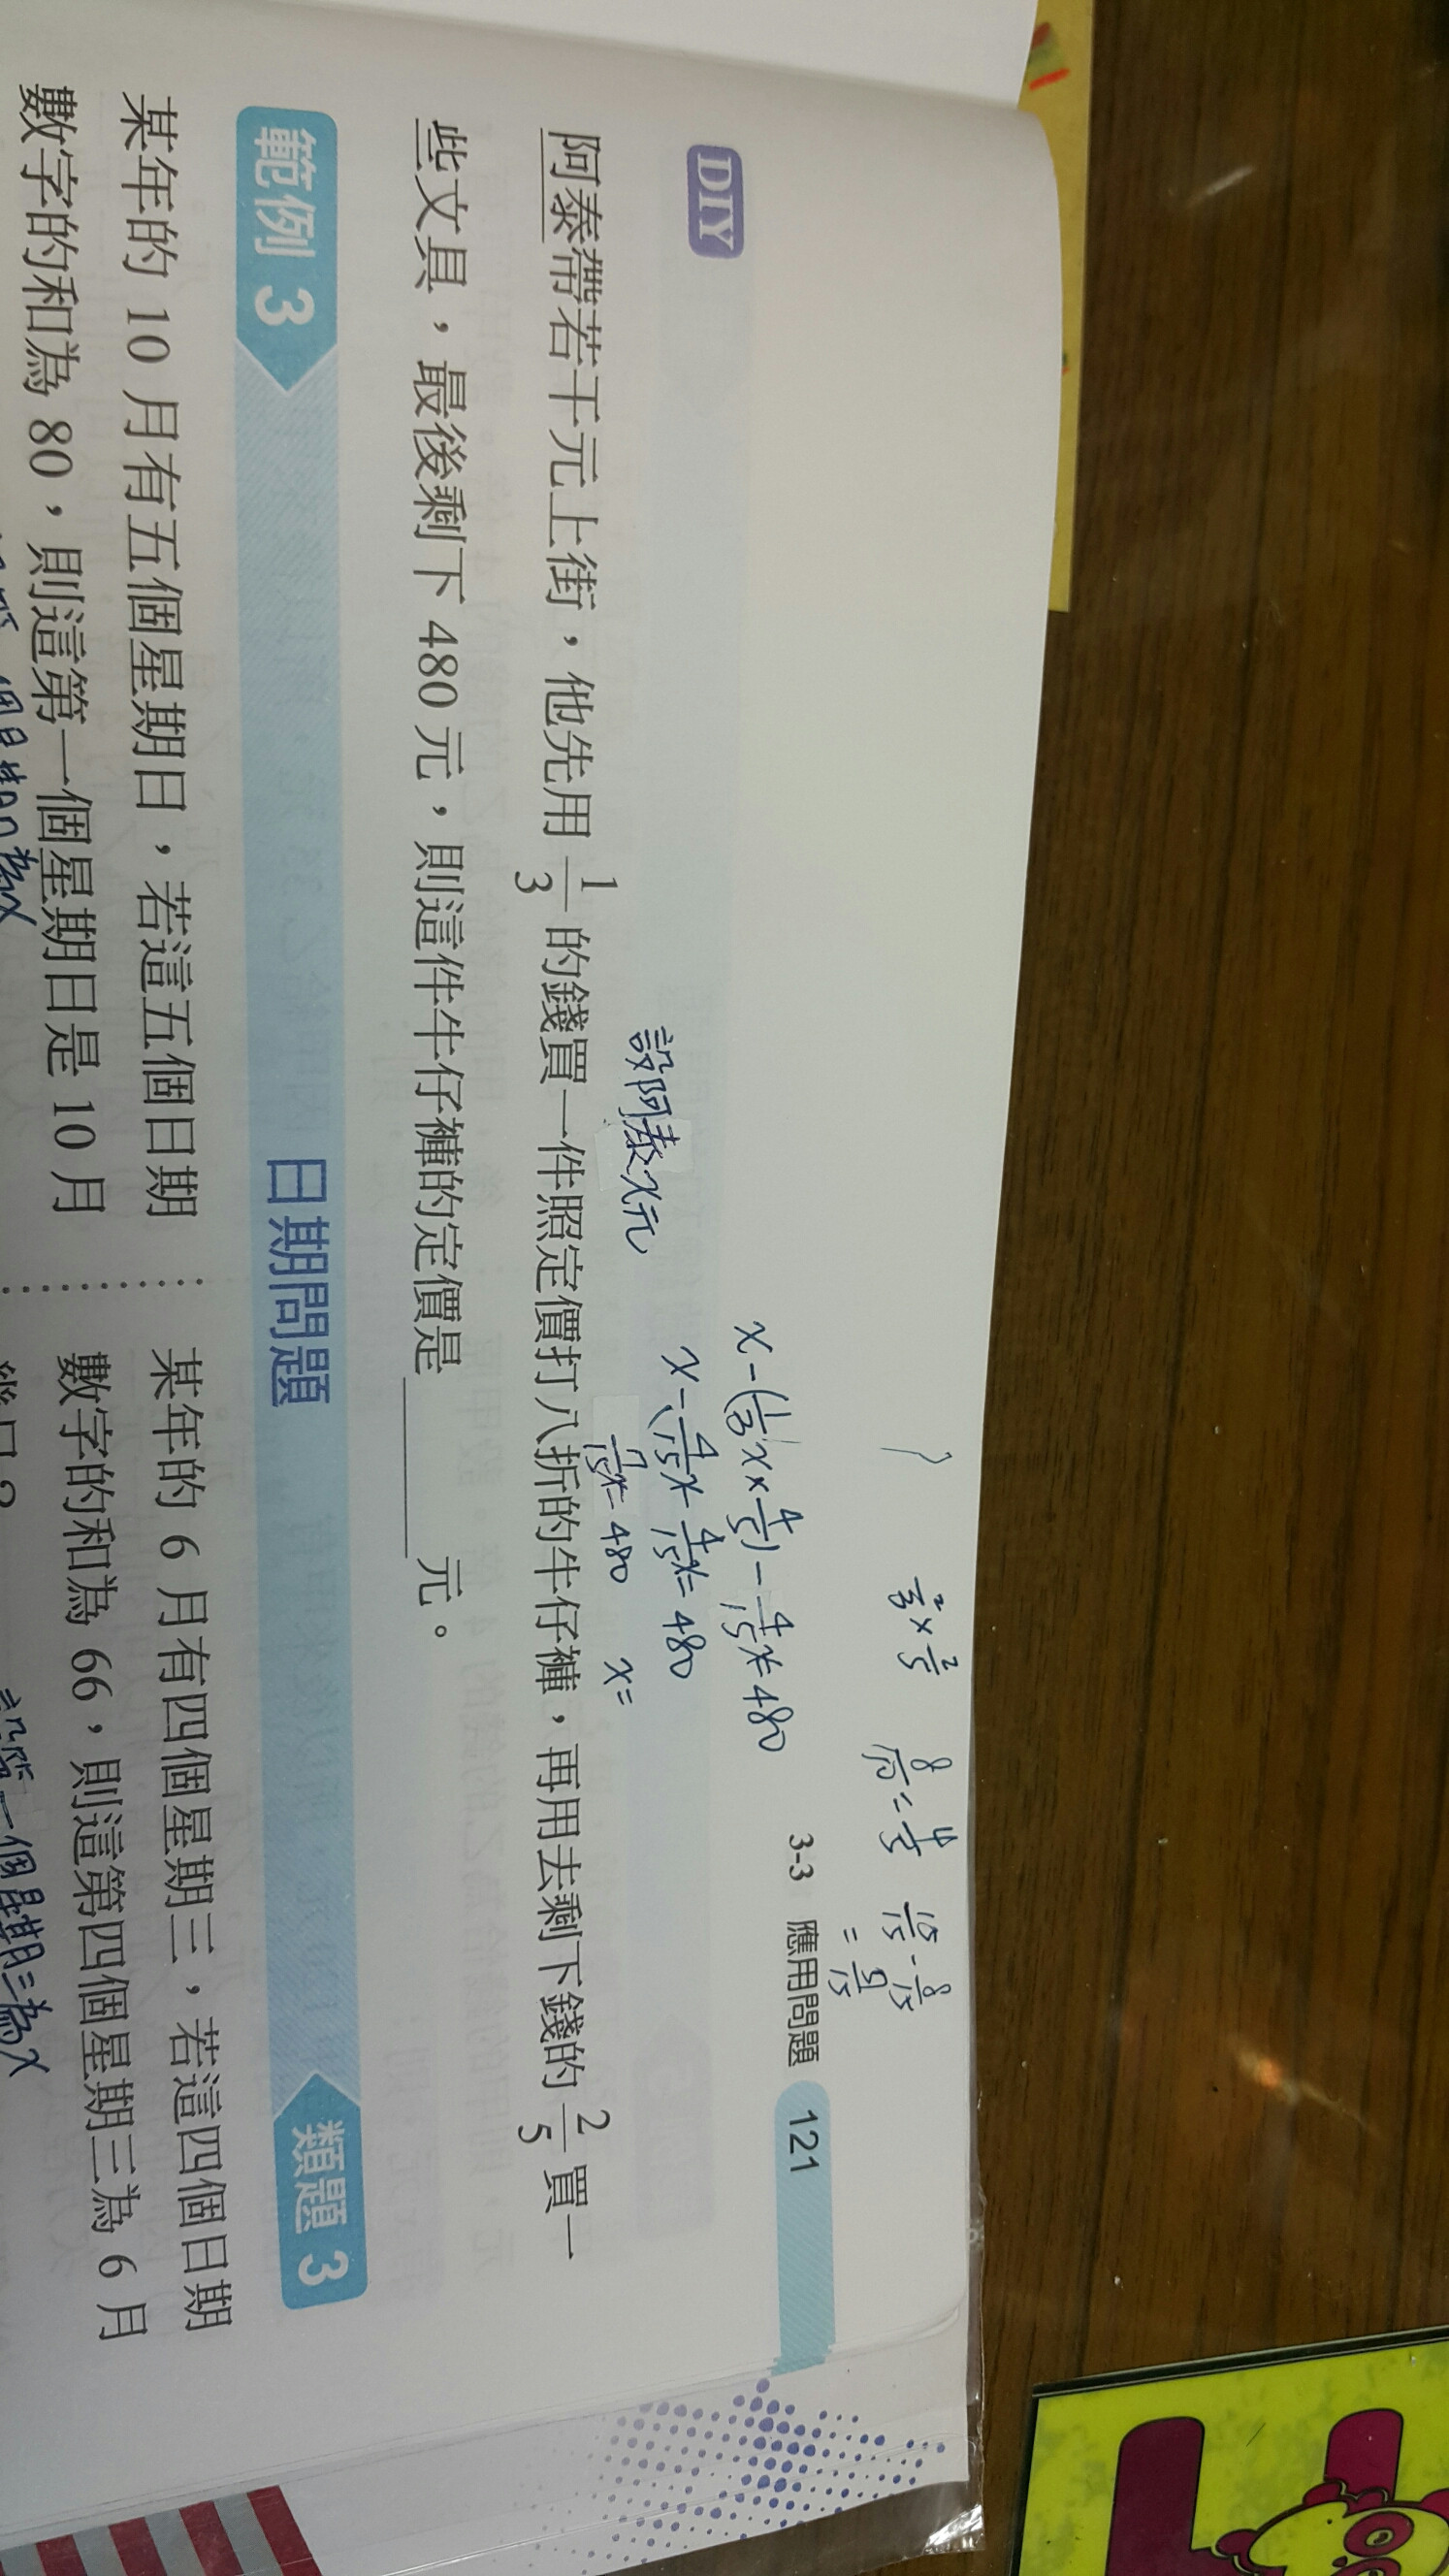 3-3 應用問題 121
DIY
2/3 × 2/5
8/10 = 4/5
15/15 - 8/15
=
設阿泰x元
x-(1/3x×4/5)-4/15x=480
x-(4/15x-4/15x=480
7/15x=480 x=
阿泰帶若干元上街,他先用 1/3 的錢買一件照定價打八折的牛仔褲,再用去剩下錢的 2/5 買一
些文具,最後剩下 480 元,則這件牛仔褲的定價是______元。
範例 3 日期問題 類題 3
某年的 10 月有五個星期日,若這五個日期
數字的和為 80,則這第一個星期日是 10 月
某年的 6 月有四個星期三,若這四個日期
數字的和為 66,則這第四個星期三為 6 月
幾日?
一個星期三為x